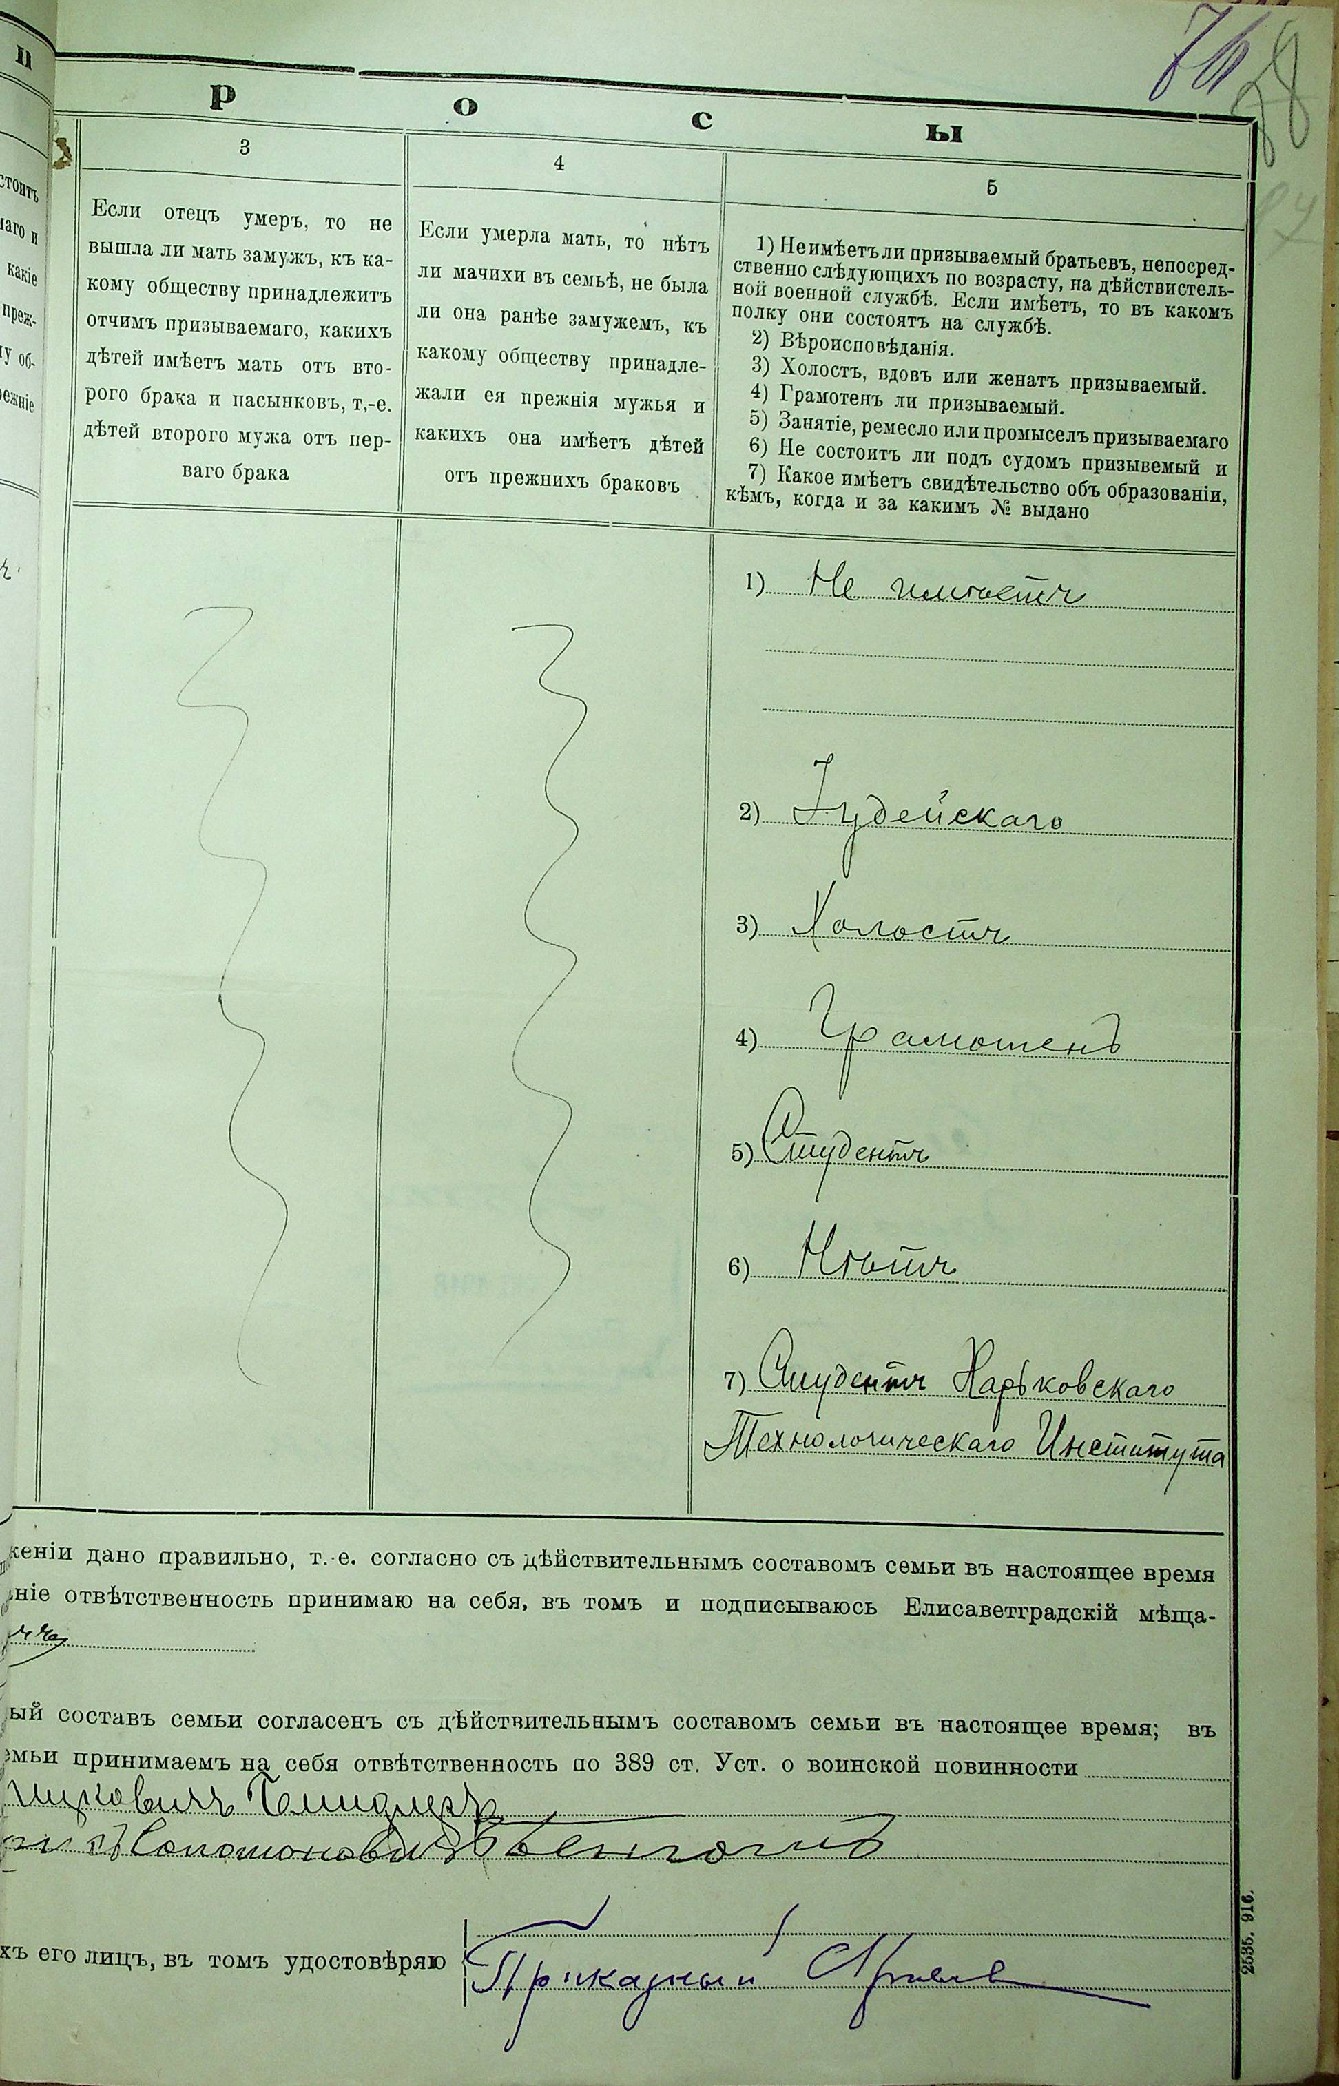 п
р о с ы
78
3
Если отецъ умеръ, то не
вышла ли мать замужъ, къ ка-
кому обществу принадлежитъ
отчимъ призываемаго, какихъ
дѣтей имѣетъ мать отъ вто-
рого брака и пасынковъ, т,-е.
дѣтей второго мужа отъ пер-
ваго брака
4
Если умерла мать, то нѣтъ
ли мачихи въ семьѣ, не была
ли она ранѣе замужемъ, къ
какому обществу принадле-
жали ея прежнія мужья и
какихъ она имѣетъ дѣтей
отъ прежнихъ браковъ
5
1) Не имѣетъ ли призываемый братьевъ, непосред-
ственно слѣдующихъ по возрасту, на дѣйствистель-
ной военной службѣ. Если имѣетъ, то въ какомъ
полку они состоятъ на службѣ.
2) Вѣроисповѣданія.
3) Холостъ, вдовъ или женатъ призываемый.
4) Грамотенъ ли призываемый.
5) Занятіе, ремесло или промыселъ призываемаго
6) Не состоитъ ли подъ судомъ призывемый и
7) Какое имѣетъ свидѣтельство объ образованіи,
кѣмъ, когда и за какимъ № выдано
1) Не имѣетъ
2) Іудейскаго
3) Холостъ
4) Грамотенъ
5) Студентъ
6) Нѣтъ
7) Студентъ Харьковскаго
Технологическаго Института
женіи дано правильно, т.-е. согласно съ дѣйствительнымъ составомъ семьи въ настоящее время
ніе отвѣтственность принимаю на себя, въ томъ и подписываюсь Елисаветградскій мѣща-
ый составъ семьи согласенъ съ дѣйствительнымъ составомъ семьи въ настоящее время; въ
емьи принимаемъ на себя отвѣтственность по 389 ст. Уст. о воинской повинности
Соломоновичъ
хъ его лицъ, въ томъ удостовѣряю
Приказный
2535. 916.